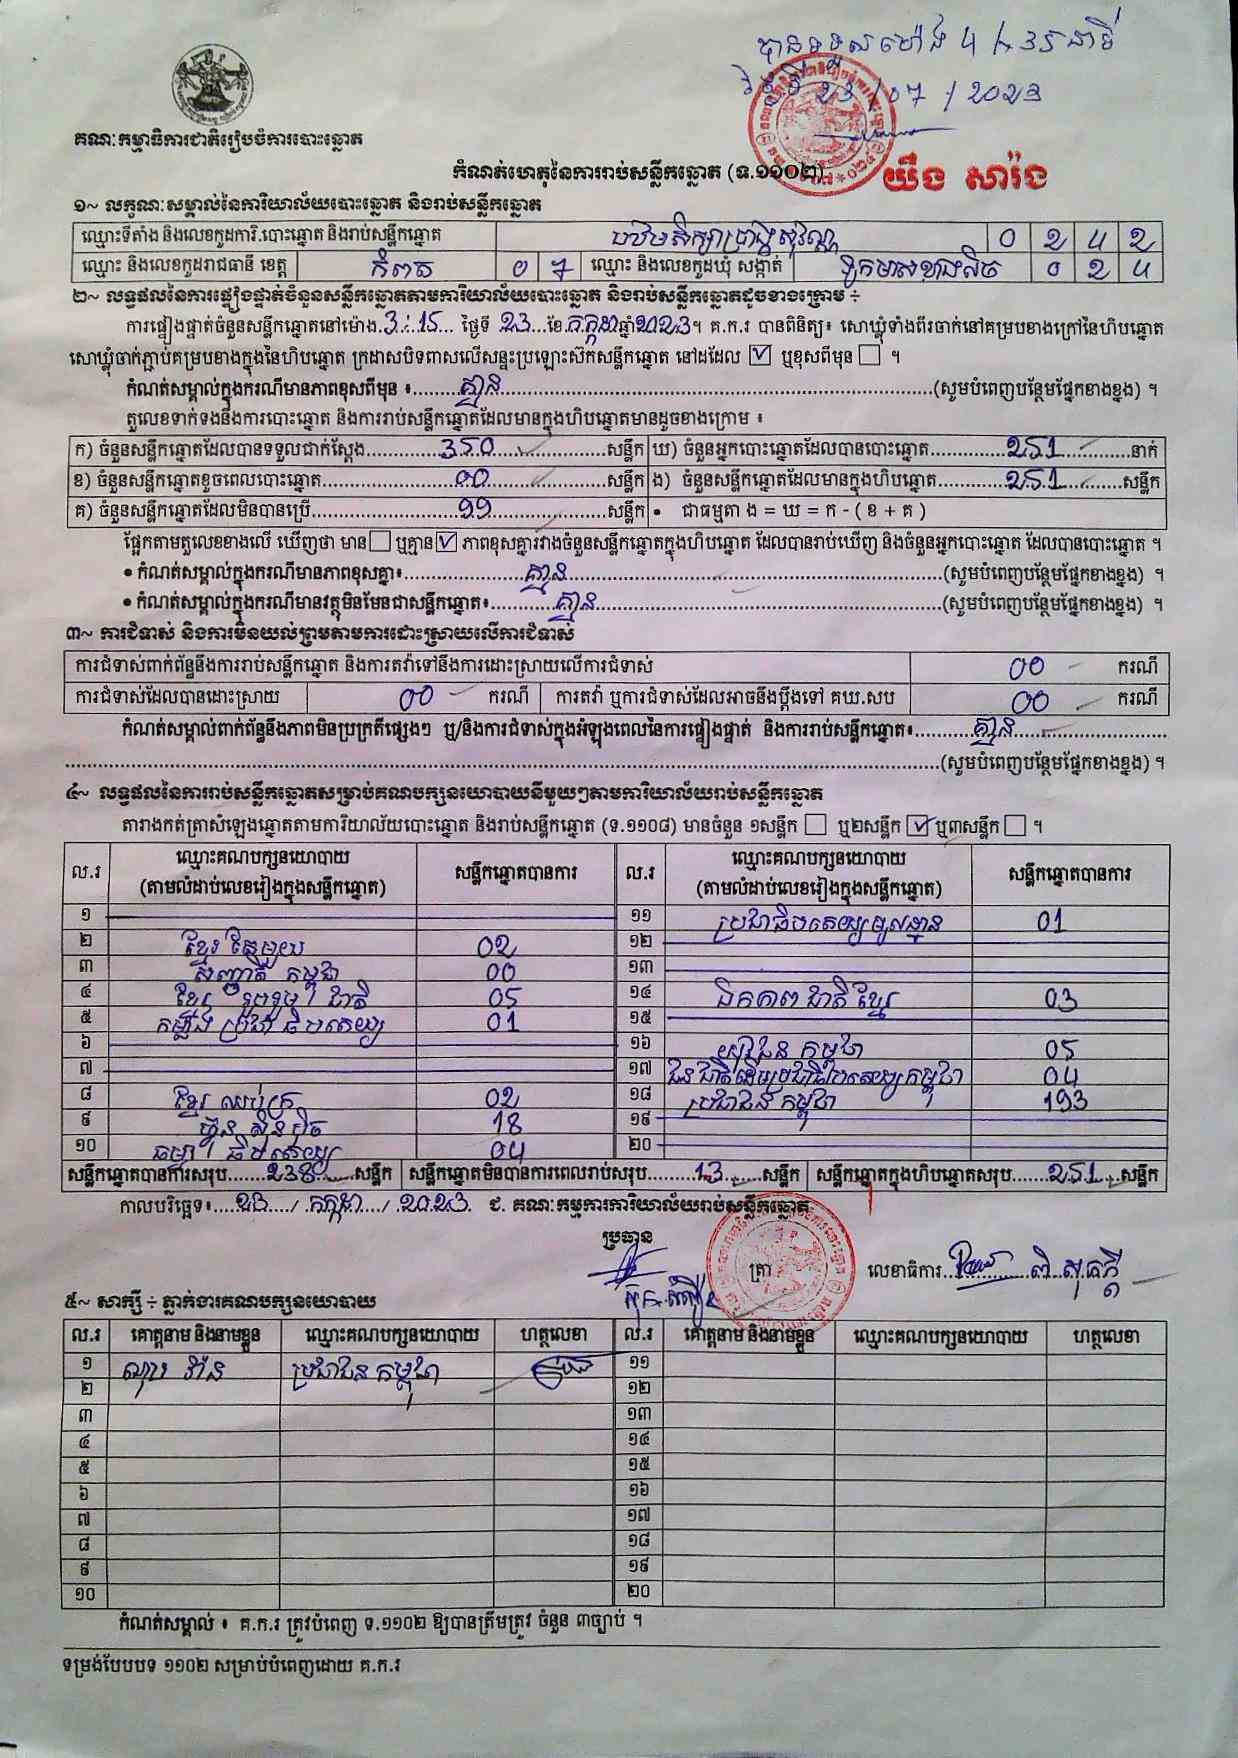 បានទទួលម៉ោង 4 h 35 នាទី
ថ្ងៃទី 23 / 07 / 2023
គណៈកម្មាធិការជាតិរៀបចំការបោះឆ្នោត
កំណត់ហេតុនៃការរាប់សន្លឹកឆ្នោត (ទ.១១០២)
យឹង សារ៉ង
១~ លក្ខណៈសម្គាល់នៃការិយាល័យបោះឆ្នោត និងរាប់សន្លឹកឆ្នោត
ឈ្មោះទីតាំង និងលេខកូដការិ.បោះឆ្នោត និងរាប់សន្លឹកឆ្នោត បឋមសិក្សាព្រាហ្មសុវណ្ណ 0 2 4 2
ឈ្មោះ និងលេខកូដរាជធានី ខេត្ត កំពត 0 7 ឈ្មោះ និងលេខកូដឃុំ សង្កាត់ ទូកមាសខាងលិច 0 2 4
២~ លទ្ធផលនៃការផ្ទៀងផ្ទាត់ចំនួនសន្លឹកឆ្នោតតាមការិយាល័យបោះឆ្នោត និងរាប់សន្លឹកឆ្នោតដូចខាងក្រោម ÷
ការផ្ទៀងផ្ទាត់ចំនួនសន្លឹកឆ្នោតនៅម៉ោង 3:15 ថ្ងៃទី 23 ខែ កក្កដា ឆ្នាំ 2023។ គ.ក.រ បានពិនិត្យ៖ សោឃ្លុំទាំងពីរចាក់នៅគម្របខាងក្រៅនៃហិបឆ្នោត
សោឃ្លុំចាក់ភ្ជាប់គម្របខាងក្នុងនៃហិបឆ្នោត ក្រដាសបិទពាសលើសន្ទះប្រឡោះស៊កសន្លឹកឆ្នោត នៅដដែល ☑ ឬខុសពីមុន ☐ ។
កំណត់សម្គាល់ក្នុងករណីមានភាពខុសពីមុន ៖ គ្មាន (សូមបំពេញបន្ថែមផ្នែកខាងខ្នង) ។
តួលេខទាក់ទងនឹងការបោះឆ្នោត និងការរាប់សន្លឹកឆ្នោតដែលមានក្នុងហិបឆ្នោតមានដូចខាងក្រោម ៖
ក) ចំនួនសន្លឹកឆ្នោតដែលបានទទួលជាក់ស្តែង 350 សន្លឹក ឃ) ចំនួនអ្នកបោះឆ្នោតដែលបានបោះឆ្នោត 251 នាក់
ខ) ចំនួនសន្លឹកឆ្នោតខូចពេលបោះឆ្នោត 00 សន្លឹក ង) ចំនួនសន្លឹកឆ្នោតដែលមានក្នុងហិបឆ្នោត 251 សន្លឹក
គ) ចំនួនសន្លឹកឆ្នោតដែលមិនបានប្រើ 99 សន្លឹក • ជាធម្មតា ង = ឃ = ក - ( ខ + គ )
ផ្អែកតាមតួលេខខាងលើ ឃើញថា មាន ☐ ឬគ្មាន ☑ ភាពខុសគ្នារវាងចំនួនសន្លឹកឆ្នោតក្នុងហិបឆ្នោត ដែលបានរាប់ឃើញ និងចំនួនអ្នកបោះឆ្នោត ដែលបានបោះឆ្នោត ។
• កំណត់សម្គាល់ក្នុងករណីមានភាពខុសគ្នា៖ គ្មាន (សូមបំពេញបន្ថែមផ្នែកខាងខ្នង) ។
• កំណត់សម្គាល់ក្នុងករណីមានវត្ថុមិនមែនជាសន្លឹកឆ្នោត៖ គ្មាន (សូមបំពេញបន្ថែមផ្នែកខាងខ្នង) ។
៣~ ការជំទាស់ និងការមិនយល់ព្រមតាមការដោះស្រាយលើការជំទាស់
ការជំទាស់ពាក់ព័ន្ធនឹងការរាប់សន្លឹកឆ្នោត និងការតវ៉ាទៅនឹងការដោះស្រាយលើការជំទាស់ 00 ករណី
ការជំទាស់ដែលបានដោះស្រាយ 00 ករណី ការតវ៉ា ឬការជំទាស់ដែលអាចនឹងប្តឹងទៅ គឃ.សប 00 ករណី
កំណត់សម្គាល់ពាក់ព័ន្ធនឹងភាពមិនប្រក្រតីផ្សេងៗ ឬ/និងការជំទាស់ក្នុងអំឡុងពេលនៃការផ្ទៀងផ្ទាត់ និងការរាប់សន្លឹកឆ្នោត៖ គ្មាន
(សូមបំពេញបន្ថែមផ្នែកខាងខ្នង) ។
៤~ លទ្ធផលនៃការរាប់សន្លឹកឆ្នោតសម្រាប់គណបក្សនយោបាយនីមួយៗតាមការិយាល័យរាប់សន្លឹកឆ្នោត
តារាងកត់ត្រាសំឡេងឆ្នោតតាមការិយាល័យបោះឆ្នោត និងរាប់សន្លឹកឆ្នោត (ទ.១១០៨) មានចំនួន ១សន្លឹក ☐ ឬ២សន្លឹក ☑ ឬ៣សន្លឹក ☐ ។
ល.រ ឈ្មោះគណបក្សនយោបាយ (តាមលំដាប់លេខរៀងក្នុងសន្លឹកឆ្នោត) សន្លឹកឆ្នោតបានការ ល.រ ឈ្មោះគណបក្សនយោបាយ (តាមលំដាប់លេខរៀងក្នុងសន្លឹកឆ្នោត) សន្លឹកឆ្នោតបានការ
១ ១១ ប្រជាធិបតេយ្យមូលដ្ឋាន 01
២ ខ្មែរតែមួយ 02 ១២
៣ សញ្ជាតិ កម្ពុជា 00 ១៣
៤ ខ្មែរ រួបរួម ជាតិ 05 ១៤ ឯកភាព ជាតិ ខ្មែរ 03
៥ កម្លាំង ប្រជាធិបតេយ្យ 01 ១៥
៦ ១៦ យុវជន កម្ពុជា 05
៧ ១៧ ជនជាតិដើមប្រជាធិបតេយ្យកម្ពុជា 04
៨ ខ្មែរ ឈប់ក្រ 02 ១៨ ប្រជាជន កម្ពុជា 193
៩ ហ្វ៊ុនស៊ិនប៉ិច 18 ១៩
១០ ធម្មាធិបតេយ្យ 04 ២០
សន្លឹកឆ្នោតបានការសរុប 238 សន្លឹក សន្លឹកឆ្នោតមិនបានការពេលរាប់សរុប 13 សន្លឹក សន្លឹកឆ្នោតក្នុងហិបឆ្នោតសរុប 251 សន្លឹក
កាលបរិច្ឆេទ៖ 23 / កក្កដា / 2023 ជ. គណៈកម្មការការិយាល័យរាប់សន្លឹកឆ្នោត
ប្រធាន
ត្រា
លេខាធិការ
៥~ សាក្សី ÷ ភ្នាក់ងារគណបក្សនយោបាយ
ល.រ គោត្តនាម និងនាមខ្លួន ឈ្មោះគណបក្សនយោបាយ ហត្ថលេខា ល.រ គោត្តនាម និងនាមខ្លួន ឈ្មោះគណបក្សនយោបាយ ហត្ថលេខា
១ ប្រជាជន កម្ពុជា ១១
២ ១២
៣ ១៣
៤ ១៤
៥ ១៥
៦ ១៦
៧ ១៧
៨ ១៨
៩ ១៩
១០ ២០
កំណត់សម្គាល់ ៖ គ.ក.រ ត្រូវបំពេញ ទ.១១០២ ឱ្យបានត្រឹមត្រូវ ចំនួន ៣ច្បាប់ ។
ទម្រង់បែបបទ ១១០២ សម្រាប់បំពេញដោយ គ.ក.រ